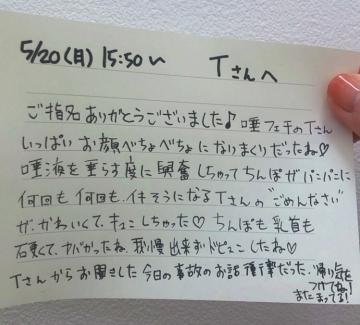 5/20(月) 15:50〜 Tさんへ
ご指名ありがとうございました♪ 唾フェチのTさん
いっぱいお顔べちょべちょになりまくりだったね♡
唾液を垂らす度に興奮しちゃってちんぽがパンパンに
何回も何回も、イキそうになるTさんの"ごめんなさい"
が、かわいくて、キュンしちゃった♡ ちんぽも乳首も
石更くて、ヤバかったね 我慢出来ずドピュンしたね♡
Tさんからお聞きした今日の事故のお話 衝撃だった 帰り気を
つけてね!
またまってる!